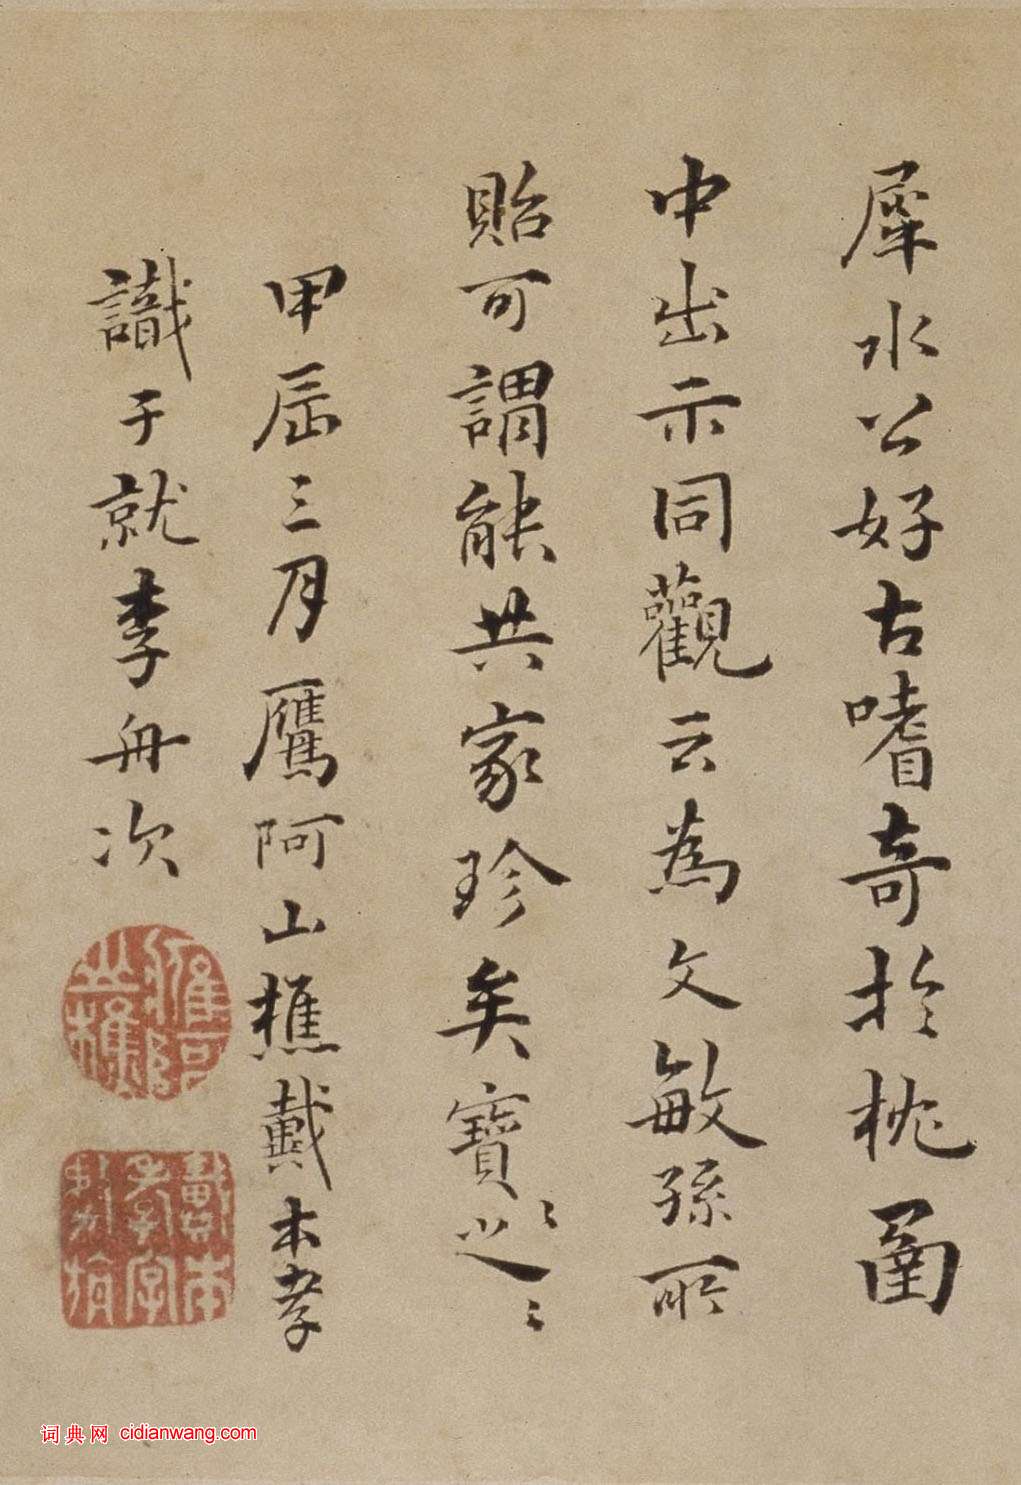 犀水公好古嗜奇於枕圅
中出示同觀云為文敏孫所
貽可謂能共家珍矣寶之〻〻
甲辰三月鷹阿山樵戴本孝
識于就李舟次
鷹阿山樵
戴本孝字
詞典网 cidianwang.com